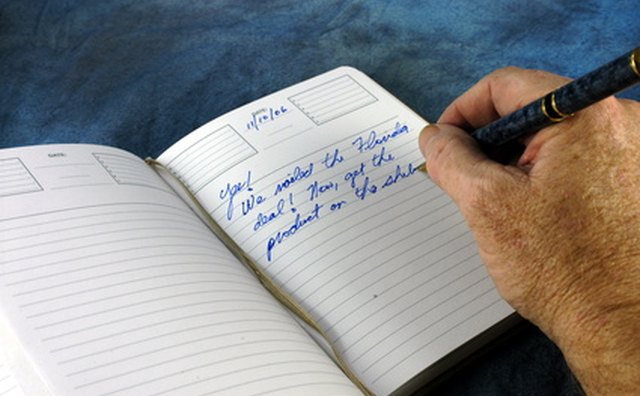 DATE:
DATE:
11/10/06
Yes!
We nailed the Florida
deal! Now, get the
product on the